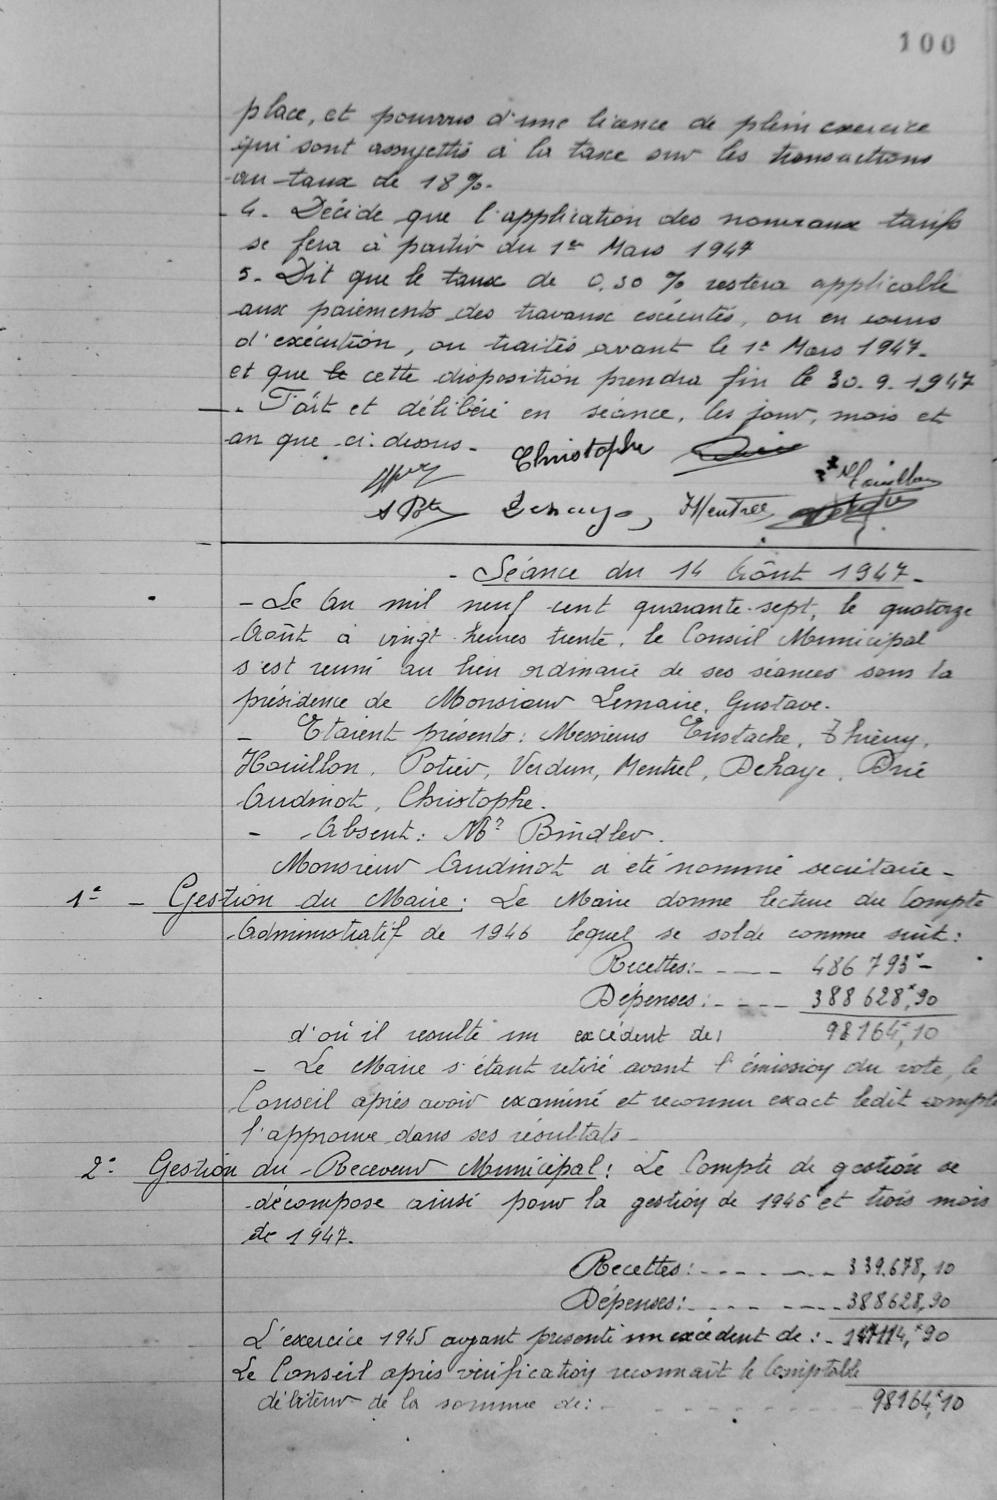 100
place, et pourvus d'une licence de plein exercice
qui sont assujettis à la taxe sur les transactions
au taux de 18%.
4. Décide que l'application des nouveaux tarifs
se fera à partir du 1er Mars 1947
5. Dit que le taux de 0.50 % restera applicable
aux paiements des travaux exécutés, ou en cours
d'exécution, ou traités avant le 1er Mars 1947.
et que le cette disposition prendra fin le 30.9.1947
Fait et délibéré en séance, les jour, mois et
an que ci-dessus.
Christophe
Houillon
Dehaye Mentrel
- Séance du 14 Août 1947.
- Le An mil neuf cent quarante-sept, le quatorze
Août à vingt heures trente, le Conseil Municipal
s'est reuni au lieu ordinaire de ses séances sous la
présidence de Monsieur Lemaire, Gustave.
- Etaient présents: Messieurs Eustache, Thiery,
Houillon, Potier, Verdun, Mentrel, Dehaye, Drié
Audinot, Christophe.
- Absent: Mr Bindler.
Monsieur Audinot a été nommé secrétaire -
1° - Gestion du Maire: Le Maire donne lecture du Compte
Administratif de 1946 lequel se solde comme suit:
Recettes: 486 793 -
Dépenses: 388 628,90
d'où il resulte un excédent de: 98164,10
- Le Maire s'étant retiré avant l'émission du vote, le
Conseil après avoir examiné et reconnu exact ledit compte
l'approuve dans ses résultats -
2° Gestion du Receveur Municipal: Le Compte de gestion se
décompose ainsi pour la gestion de 1946 et trois mois
de 1947.
Recettes: 339.678,10
Dépenses: 388628,90
L'exercice 1945 ayant presenté un excédent de: 147114,90
Le Conseil après vérification reconnait le Comptable
débiteur de la somme de: 98164,10